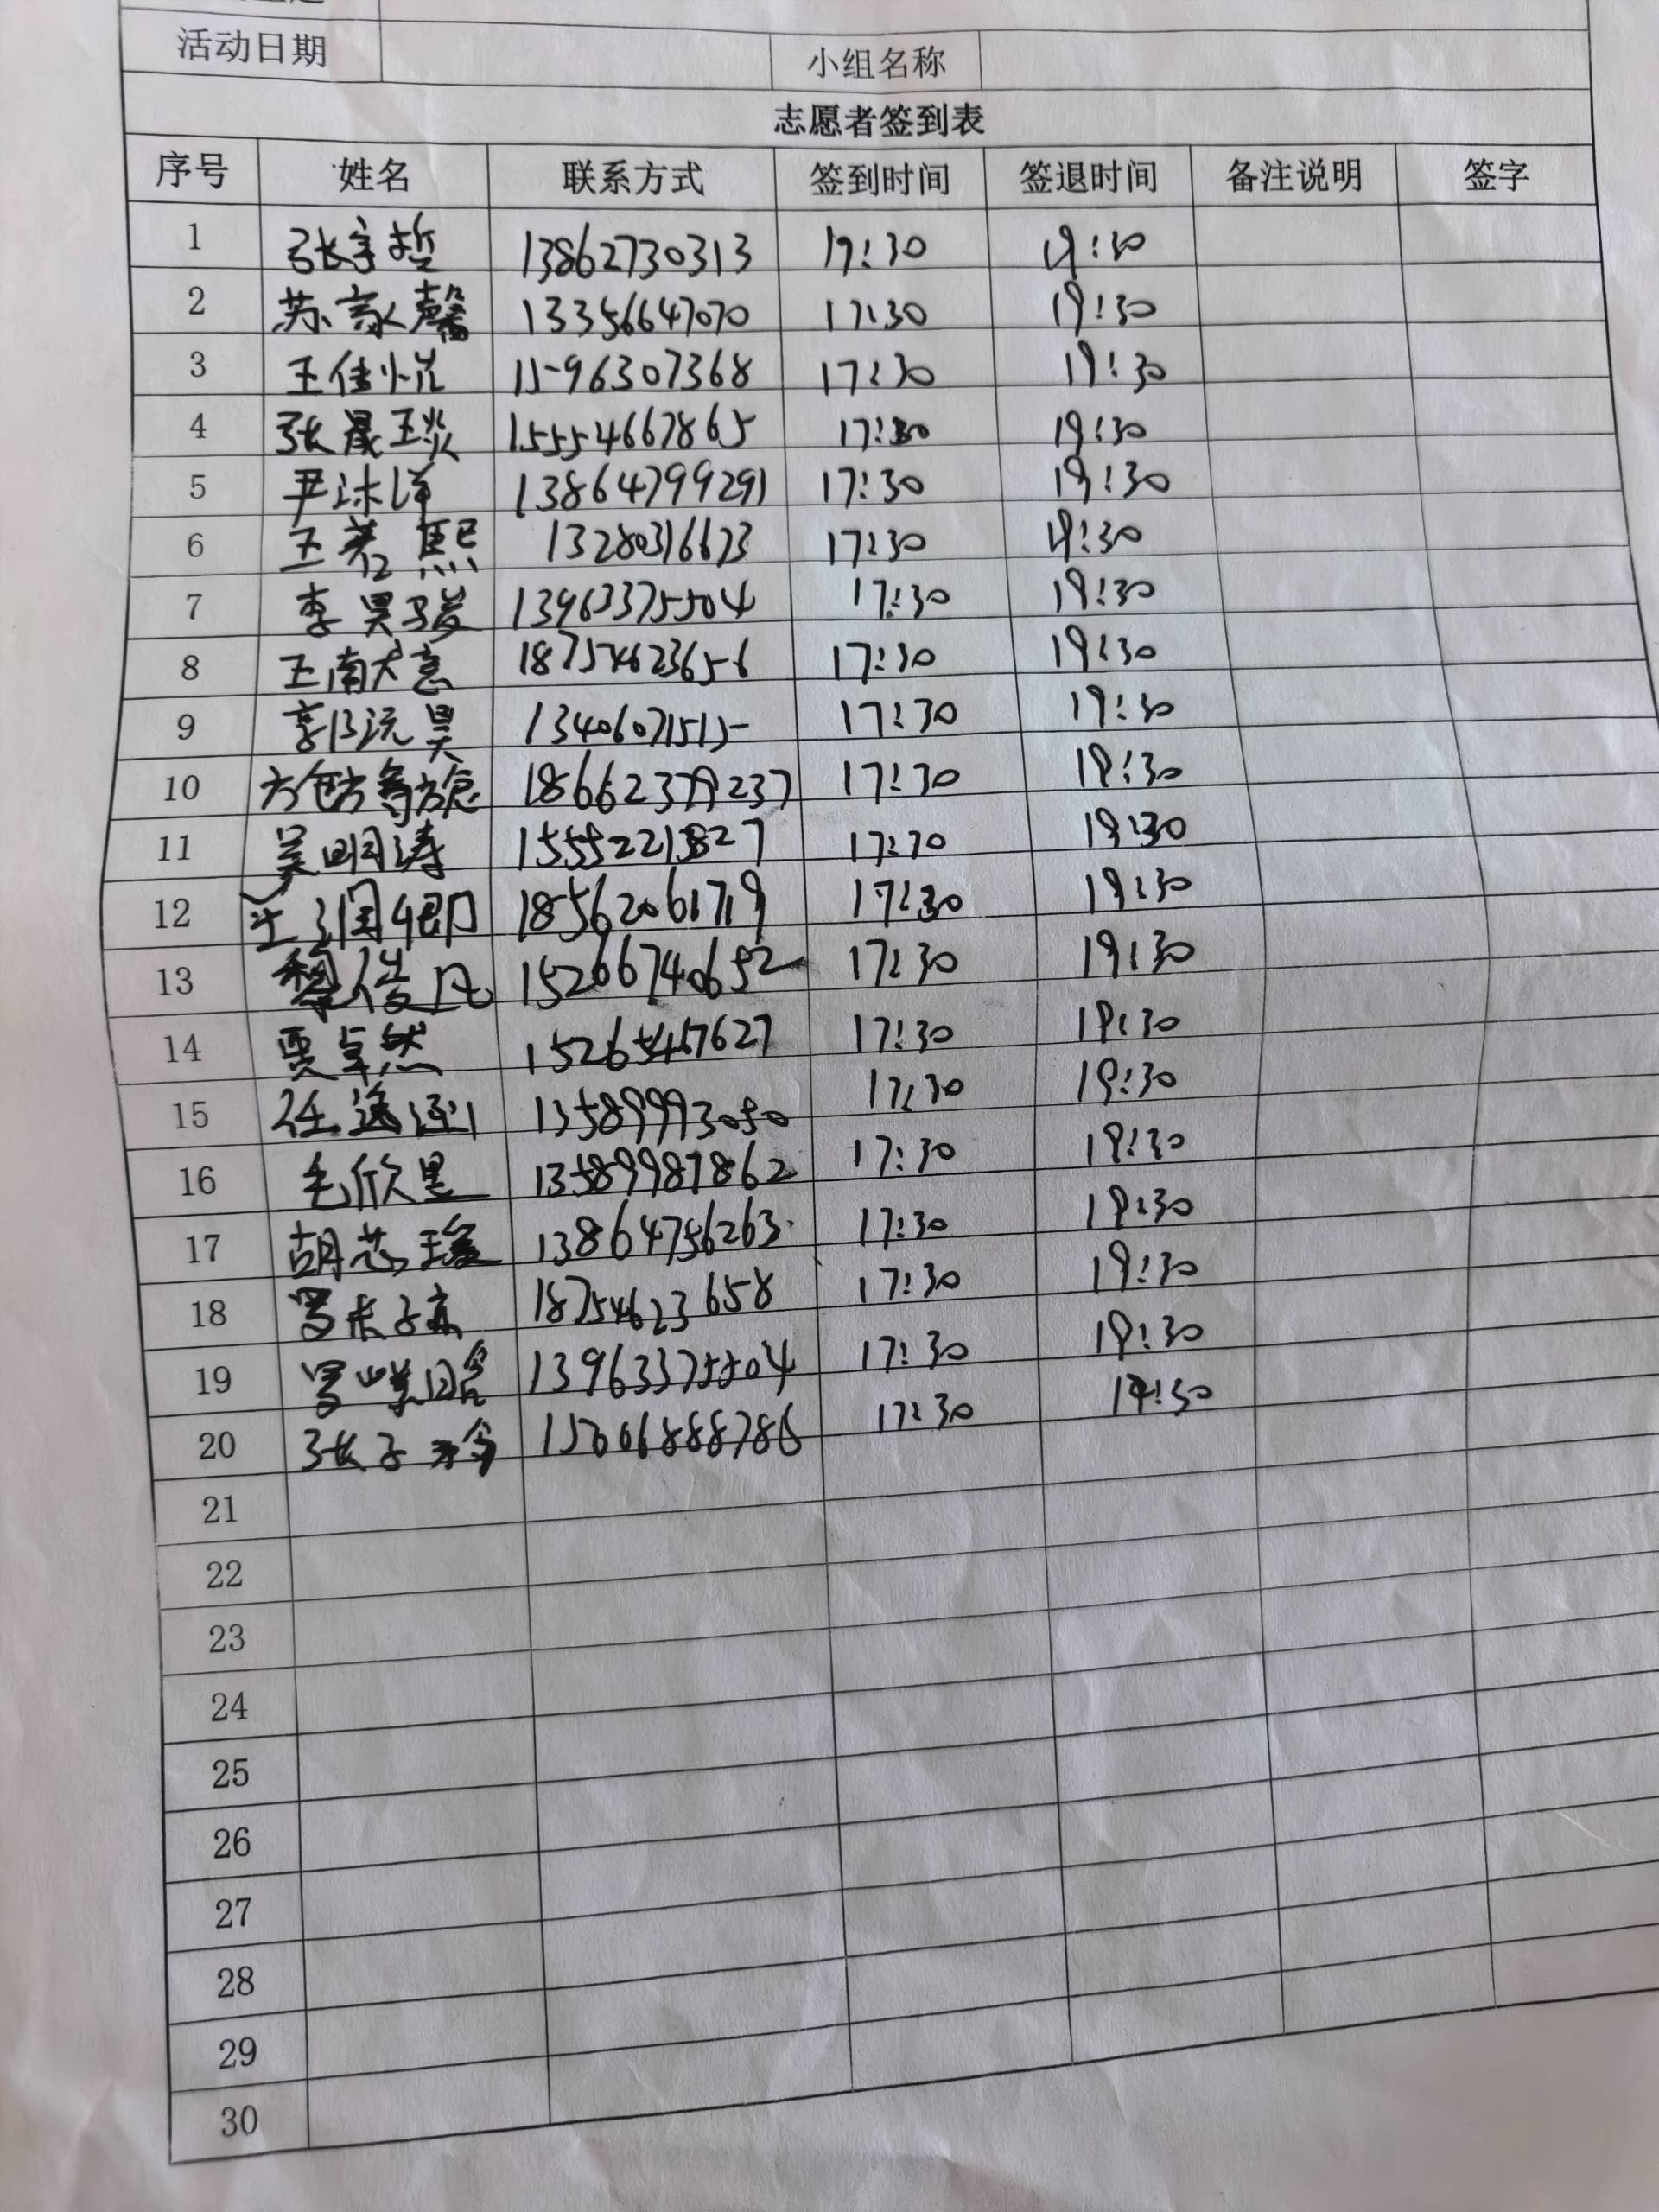 活动日期 小组名称
志愿者签到表
序号 姓名 联系方式 签到时间 签退时间 备注说明 签字
1 张宇哲 13862730313 17:30 19:30
2 苏家馨 13356647070 17:30 19:30
3 王佳 1596307368 17:30 19:30
4 张晟琰 15554667865 17:30 19:30
5 尹沐洋 13864799291 17:30 19:30
6 王若熙 13280316623 17:30 19:30
7 李昊骏 13963375504 17:30 19:30
8 王南大意 18754623656 17:30 19:30
9 李沅昊 13406071515 17:30 19:30
10 18662379237 17:30 19:30
11 吴明涛 15552213827 17:30 19:30
12 王润 18562061719 17:30 19:30
13 黎俊凡 15266740652 17:30 19:30
14 贾卓然 15265467627 17:30 19:30
15 任逸 13589993050 17:30 19:30
16 毛欣 13589987862 17:30 19:30
17 胡芯瑗 13864756263 17:30 19:30
18 18754623658 17:30 19:30
19 13963375504 17:30 19:30
20 张子 15606888786 17:30 19:30
21
22
23
24
25
26
27
28
29
30